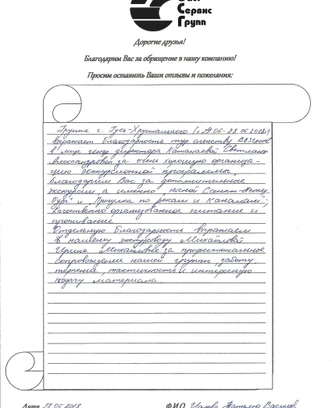 Сервис
Групп
Дорогие друзья!
Благодарим Вас за обращение в нашу компанию!
Просим оставить Ваши отзывы и пожелания:
Группа г. Гусь-Хрустального
Выражает благодарность тур агентству
в лице ген. директора Светлане
Александровне за очень хорошую организа-
цию экскурсионной программы,
Благодарим Вас за дополнительные
экскурсии, а именно "Ночной Санкт-Петер-
бург" и "Прогулка по рекам и каналам";
Качественно организованное питание и
проживание.
Отдельную благодарность выражаем
нашему экскурсоводу Михайловой
Ирине Михайловне за профессиональное
сопровождение нашей группы, заботу,
терпение, тактичность и интересную
подачу материала.
Дата
Ф.И.О. Татьяна